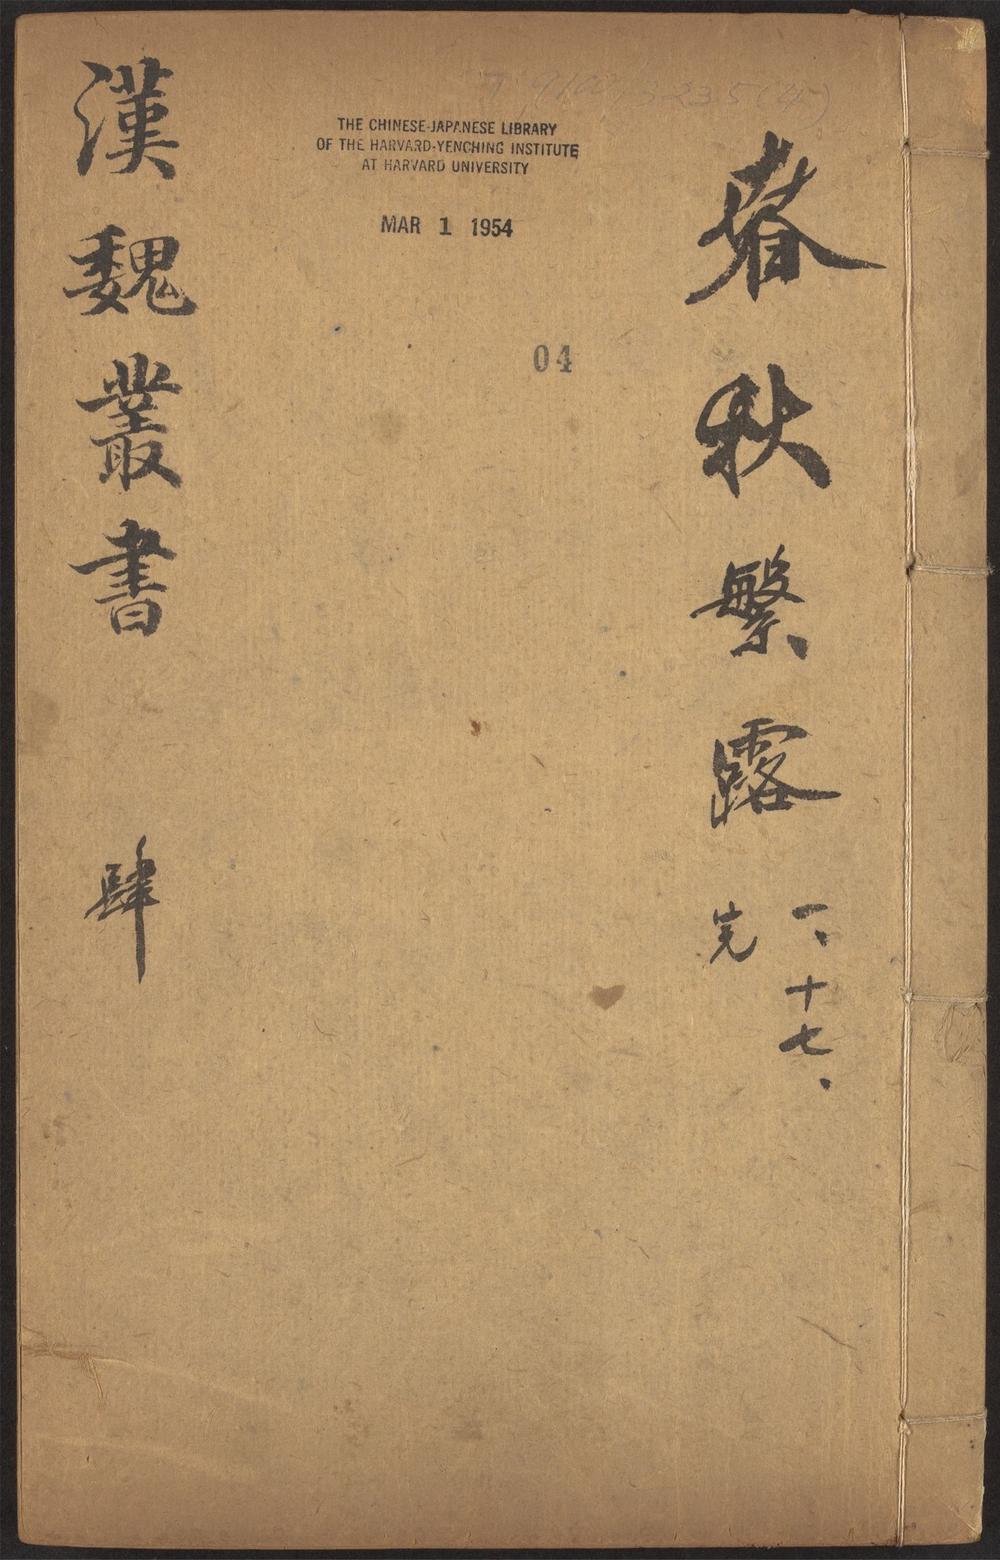 春秋繁露
一、十七、
完
THE CHINESE-JAPANESE LIBRARY
OF THE HARVARD-YENCHING INSTITUTE
AT HARVARD UNIVERSITY
MAR 1 1954
04
漢魏叢書 肆